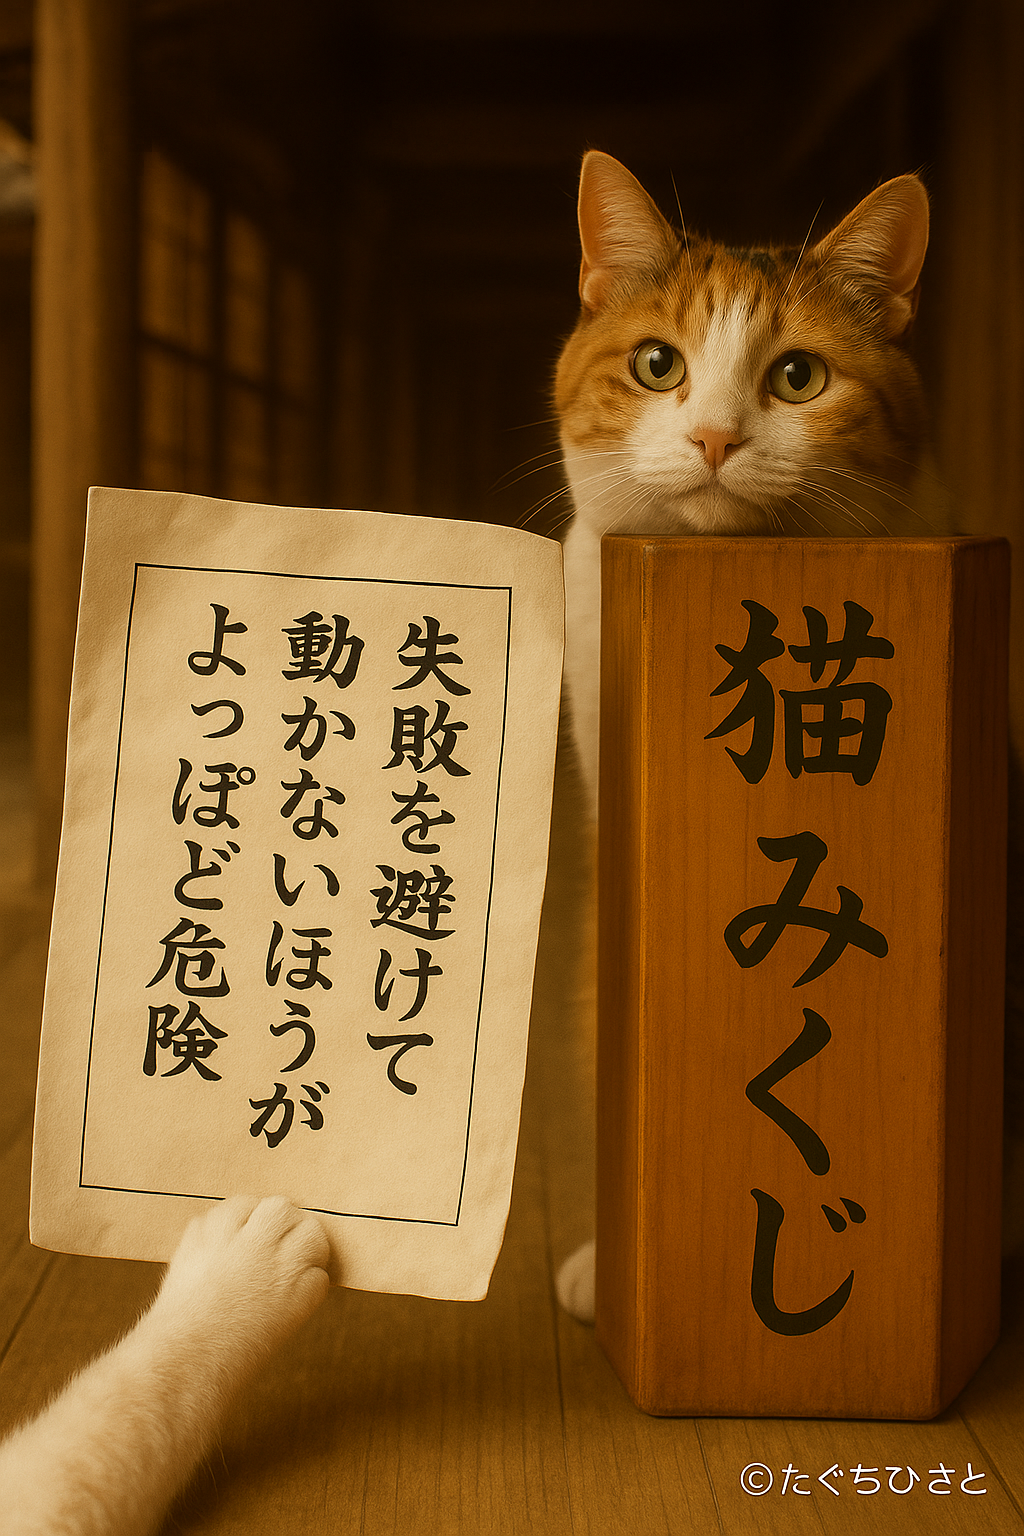 失敗を避けて
動かないほうが
よっぽど危険
猫みくじ
©たぐちひさと